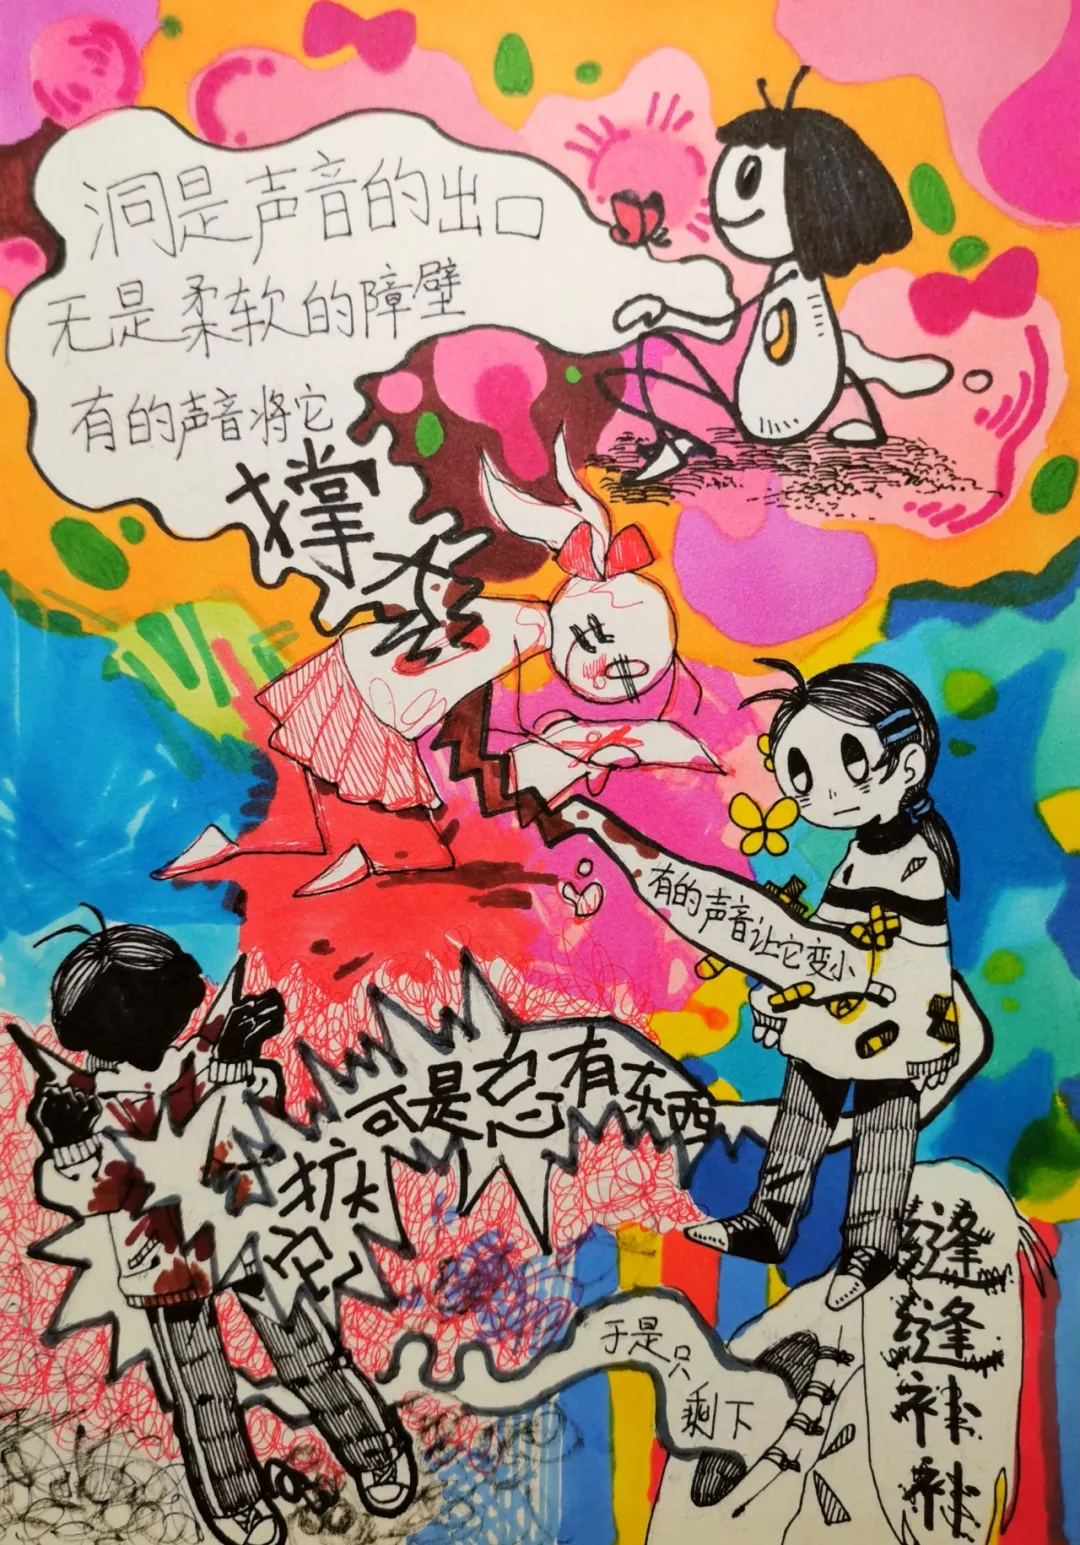 洞是声音的出口
无是柔软的障壁
有的声音将它
撑
有的声音让它变小
可是 有东西
它
于是只
剩下
缝缝补补